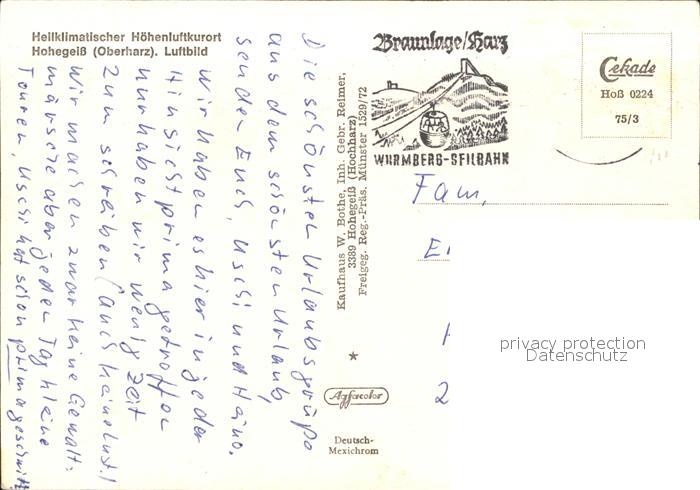 Heilklimatischer Höhenluftkurort
Hohegeiß (Oberharz). Luftbild
Die schönsten Urlaubsgrüße
aus dem schönsten Urlaub,
senden Euch, Uschi und Heino.
Wir haben es hier in jeder
Hinsicht prima getroffen
nur haben wir wenig Zeit
zum schreiben (auch keine Lust!)
Wir machen zwar keine Gewalt-
märsche aber jeden Tag kleine
Touren, Uschi hat schon prima
Kaufhaus W. Bothe, Inh. Gebr. Reimer,
3389 Hohegeiß (Hochharz)
Freigeg. Reg.-Präs. Münster 1529/72
*
Agfacolor
Deutsch-
Mexichrom
Braunlage/Harz
WURMBERG-SEILBAHN
Cekade
Hoß 0224
75/3
Fam.
E
1
2
privacy protection
Datenschutz